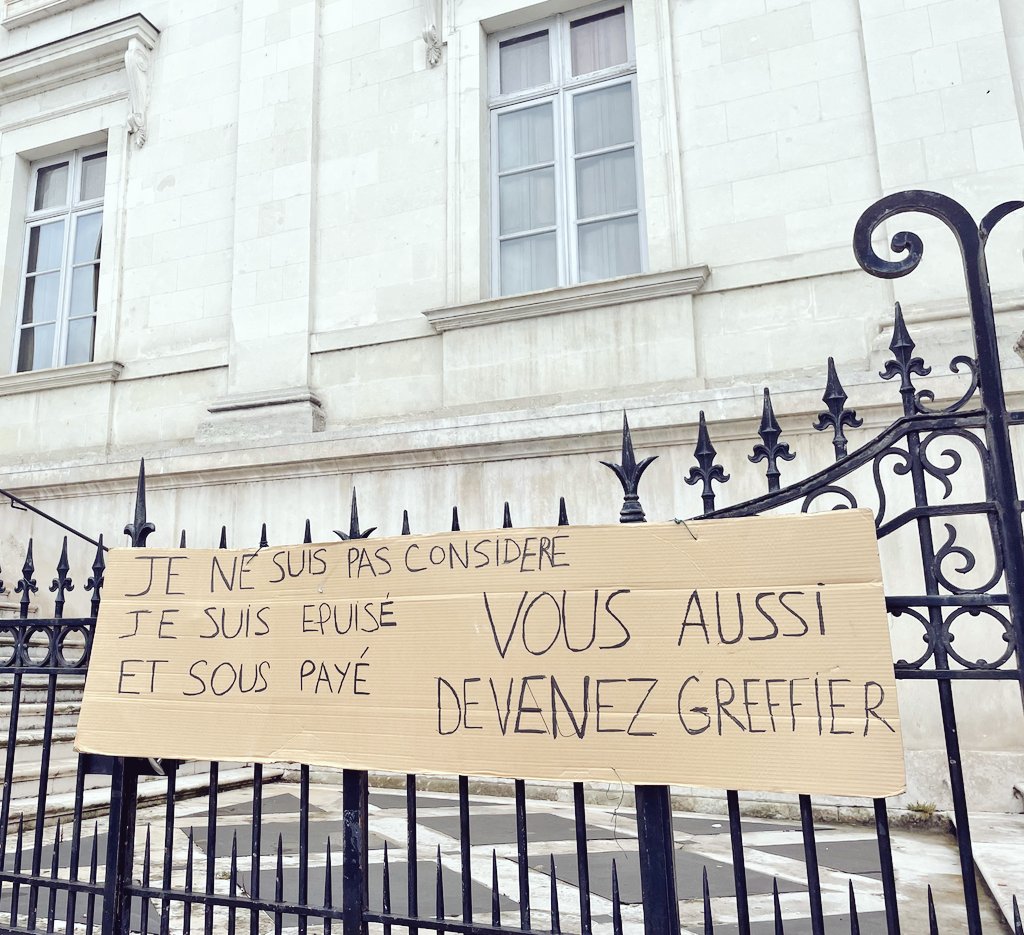 JE NE SUIS PAS CONSIDERE
JE SUIS EPUISÉ
ET SOUS PAYÉ
VOUS AUSSI
DEVENEZ GREFFIER